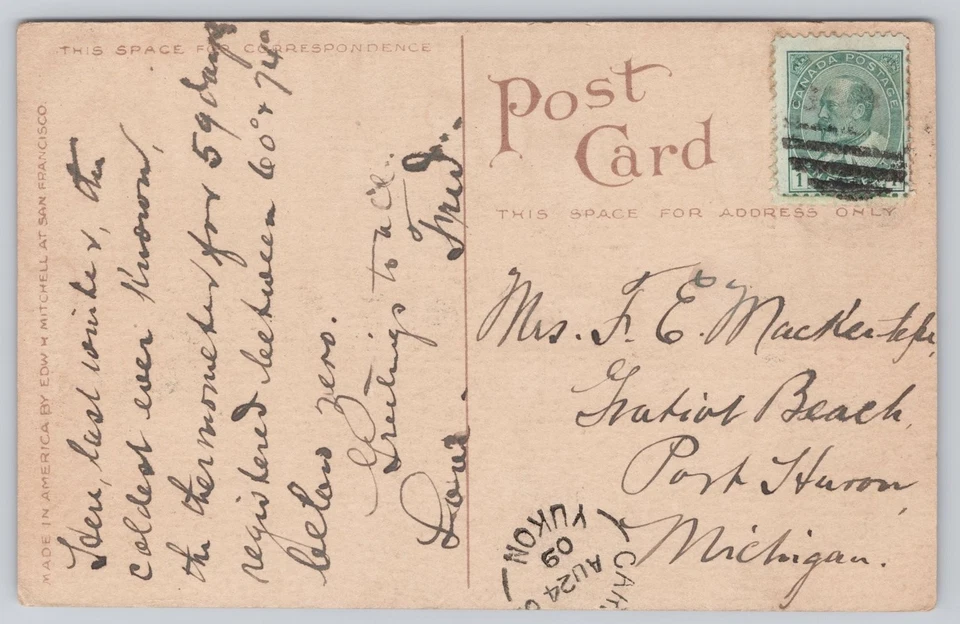 THIS SPACE FOR CORRESPONDENCE
MADE IN AMERICA BY EDW H MITCHELL AT SAN FRANCISCO
Here, last winter, the
coldest ever known,
the thermometer for 59 days
registered between 60° & 74°
below zero.
Greetings to all.
Love. Fred.
Post
Card
CANADA POSTAGE
1
THIS SPACE FOR ADDRESS ONLY
Mrs. F. E.
Gratiot Beach,
Port Huron,
Michigan.
YUKON
AU 24
09
CAN